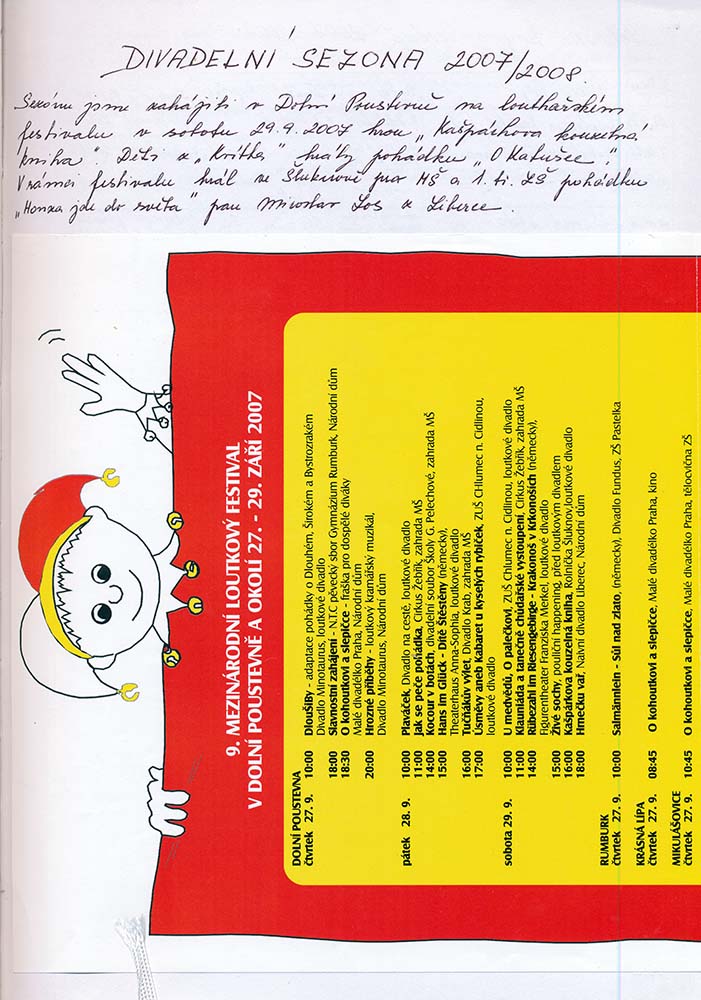 DIVADELNÍ SEZONA 2007/2008.
Sezónu jsme zahájili v Dolní Poustevně na loutkařském
festivalu v sobotu 29.9.2007 hrou „Kašpárkova kouzelná
kniha". Děti z „Krítka" hrály pohádku „O Kabušce".
V rámci festivalu hrál ve Šluknově pro MŠ a 1. tř. ZŠ pohádku
„Honza jde do světa" pan Miroslav Los z Liberce.
9. MEZINÁRODNÍ LOUTKOVÝ FESTIVAL
V DOLNÍ POUSTEVNĚ A OKOLÍ 27. - 29. ZÁŘÍ 2007
DOLNÍ POUSTEVNA
čtvrtek 27. 9. 10:00 DlouŠiBy - adaptace pohádky o Dlouhém, Širokém a Bystrozrakém
Divadlo Minotaurus, loutkové divadlo
18:00 Slavnostní zahájení - N.T.C pěvecký sbor Gymnázium Rumburk, Národní dům
18:30 O kohoutkovi a slepičce - fraška pro dospělé diváky
Malé divadélko Praha, Národní dům
20:00 Hrozné příběhy - loutkový kramářský muzikál,
Divadlo Minotaurus, Národní dům
pátek 28. 9. 10:00 Plaváček, Divadlo na cestě, loutkové divadlo
11:00 Jak se peče pohádka, Cirkus Žebřík, zahrada MŠ
14:00 Kocour v botách, divadelní soubor Školy G. Pelechové, zahrada MŠ
15:00 Hans im Glück - Dítě Štěstěny (německy),
Theaterhaus Anna-Sophia, loutkové divadlo
16:00 Tučňákův výlet, Divadlo Krab, zahrada MŠ
17:00 Úsměvy aneb Kabaret u kyselých rybiček, ZUŠ CHlumec n. Cidlinou,
loutkové divadlo
sobota 29. 9. 10:00 U medvědů, O palečkovi, ZUŠ Chlumec n. Cidlinou, loutkové divadlo
11:00 Klauniáda a tanečně chůdařské vystoupení, Cirkus Žebřík, zahrada MŠ
14:00 Rübezahl im Riesengebirge - Krakonoš v Krkonoších (německy),
Figurentheater Franziska Merkel, loutkové divadlo
15:00 Živé sochy, pouliční happening, před loutkovým divadlem
16:00 Kašpárkova kouzelná kniha, Rolnička Šluknov,loutkové divadlo
18:00 Hrnečku vař, Naivní divadlo Liberec, Národní dům
RUMBURK
čtvrtek 27. 9. 10:00 Salmännlein - Sůl nad zlato, (německy), Divadlo Fundus, ZŠ Pastelka
KRÁSNÁ LÍPA
čtvrtek 27. 9. 08:45 O kohoutkovi a slepičce, Malé divadélko Praha, kino
MIKULÁŠOVICE
čtvrtek 27. 9. 10:45 O kohoutkovi a slepičce, Malé divadélko Praha, tělocvična ZŠ